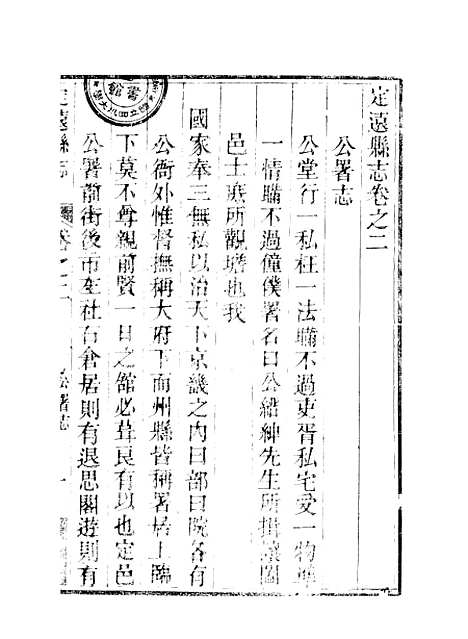 定遠縣志卷之二
公署志
公堂行一私枉一法瞞不過吏胥私宅愛一物
一情瞞不過僮僕署名曰公縉紳先生所揖讓闔
邑士庶所觀瞻也我
國家奉三無私以治天下京畿之內曰部曰院各有
公衙外惟督撫稱大府下而州縣皆稱署居上臨
下莫不毋親前賢一日之館必葺良有以也定邑
公署前街後市左社右倉居則有退思閣遊則有
定遠縣志
卷之二
公署志
一